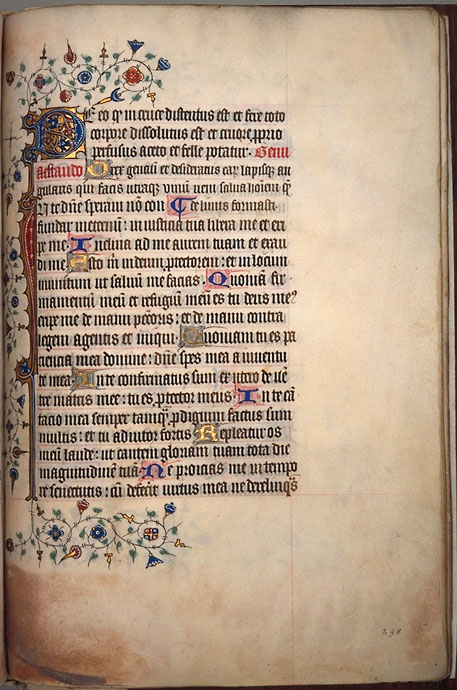 De eo qͥ in cruce distentus est et fere toto
corpore dissolutus est et cruore ꝓprio
perfusus aceto et felle potatur. Genu
flectando O rex gentiū et desideratus eaꝝ lapisqꝫ an
gularis qui facis utraqꝫ unum veni salva hoīem q̄
de limo formasti
N te dn̄e speravi nō con
fundar in eternū: in iusticia tua libera me et eri
pe me. Inclina ad me aurem tuam et exau
di me. Esto mͥ in deum ꝓtectorem: et in locum
munitum ut salvū me facias. Quoniā fir
mamentū meū et refugiū meū es tu deus me⁹
eripe me de manu pccōris: et de manu contra
legem agentis et iniqui. Quoniam tu es pa
ciencia mea domine: dn̄e spes mea a iuventu
te mea. In te confirmatus sum ex utero de ve
tre matris mee: tu es ꝓtector meus. In te cā
tacio mea semper tamqͣ ꝓdigium factus sum
multis: et tu adiutor fortis. Repleatur os
meū laude: ut cantem gloriam tuam tota die
magnitudinē tuā. Ne proicias me in tempo
re senectutis: cū defecerit virtus mea ne derelinqͣs
298